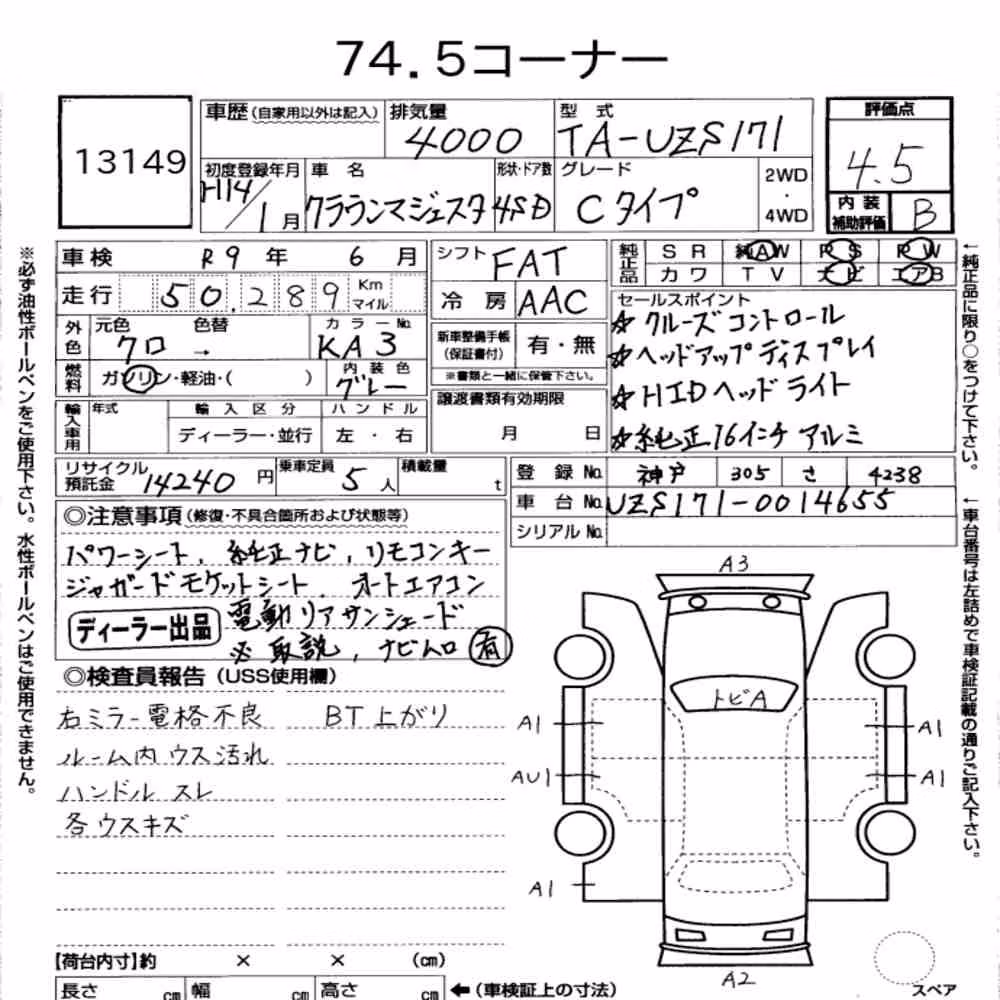 74.5コーナー
13149
車歴(自家用以外は記入) 排気量 4000 型式 TA-UZS171 評価点 4.5
初度登録年月 H14/1月 車名 クラウンマジェスタ 形状・ドア数 4SD グレード Cタイプ 2WD・4WD 内装補助評価 B
車検 R9年 6月 シフト FAT 純正品 SR 純AW PS PW
カワ TV ナビ エアB
走行 50,289 Km マイル 冷房 AAC
外色 元色 クロ 色替 → カラーNo. KA3
新車整備手帳(保証書付) 有・無
※書類と一緒に保管下さい。
燃料 ガソリン・軽油・( ) 内装色 グレー
輸入車用 年式 輸入区分 ディーラー・並行 ハンドル 左・右
譲渡書類有効期限 月 日
セールスポイント
☆クルーズコントロール
☆ヘッドアップディスプレイ
☆HIDヘッドライト
☆純正16インチアルミ
リサイクル預託金 14240円 乗車定員 5人 積載量 t
登録No. 神戸 305 さ 4238
車台No. UZS171-0014655
シリアルNo.
◎注意事項(修復・不具合箇所および状態等)
パワーシート、純正ナビ、リモコンキー
ジャガードモケットシート、オートエアコン
ディーラー出品 電動リアサンシェード
※取説、ナビロム 有
◎検査員報告(USS使用欄)
右ミラー電格不良 BT上がり
ルーム内ウス汚れ
ハンドルスレ
各ウスキズ
A3
トビA
A1 A1
AU1 A1
A1
A2
スペア
【荷台内寸】約 × × (cm)
長さ cm 幅 cm 高さ cm ←(車検証上の寸法)
※必ず油性ボールペンをご使用下さい。水性ボールペンはご使用できません。
←純正品に限り○をつけて下さい。
←車台番号は左詰めで車検証記載の通りご記入下さい。